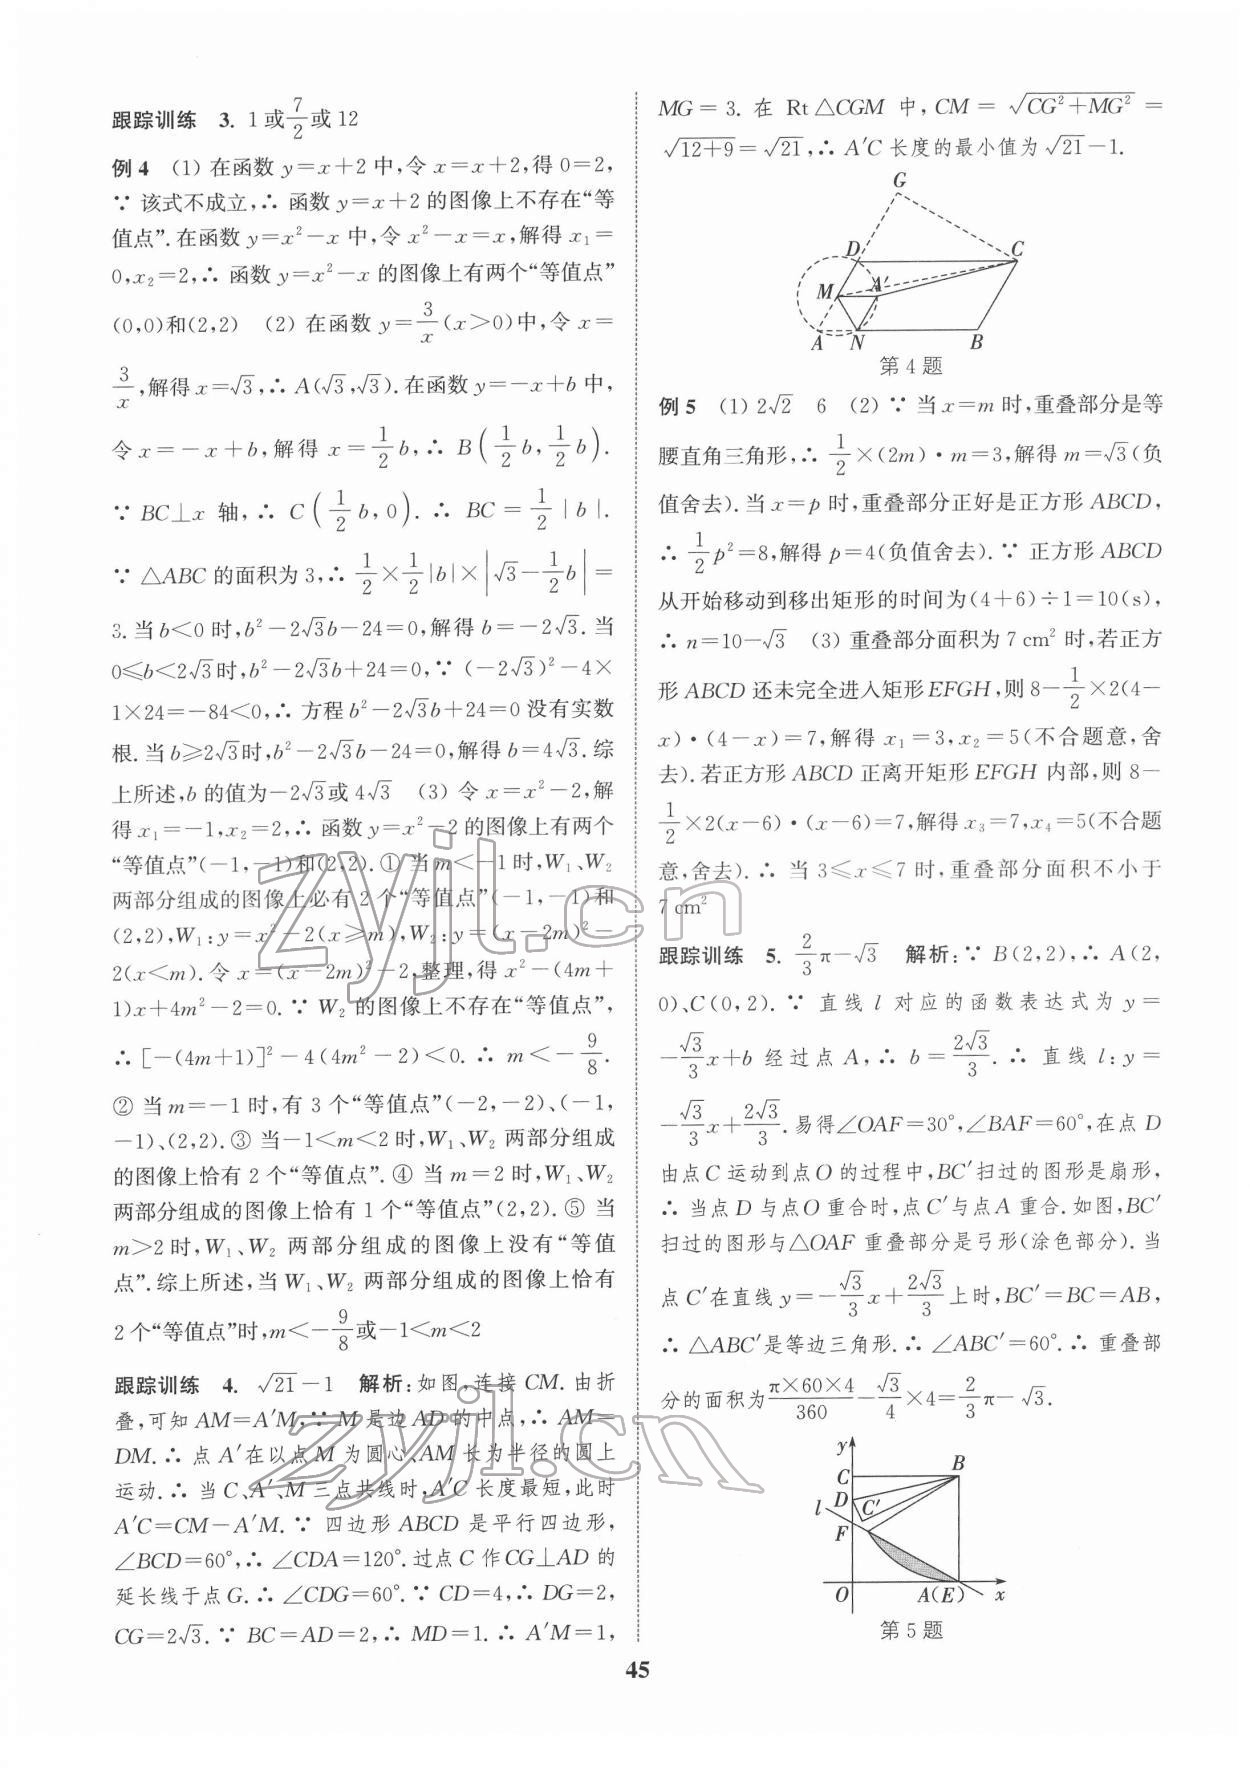 跟踪训练 3. 1或7/2或12
例4 (1) 在函数 y=x+2 中,令 x=x+2,得 0=2,
∵ 该式不成立,∴ 函数 y=x+2 的图像上不存在“等
值点”. 在函数 y=x²-x 中,令 x²-x=x,解得 x₁=
0,x₂=2,∴ 函数 y=x²-x 的图像上有两个“等值点”
(0,0)和(2,2) (2) 在函数 y=3/x(x>0)中,令 x=
3/x,解得 x=√3,∴ A(√3,√3). 在函数 y=-x+b 中,
令 x=-x+b,解得 x=1/2b,∴ B(1/2b,1/2b).
∵ BC⊥x 轴,∴ C(1/2b,0). ∴ BC=1/2|b|.
∵ △ABC 的面积为 3,∴ 1/2×1/2|b|×|√3-1/2b|=
3. 当 b<0 时,b²-2√3b-24=0,解得 b=-2√3. 当
0≤b<2√3时,b²-2√3b+24=0,∵ (-2√3)²-4×
1×24=-84<0,∴ 方程 b²-2√3b+24=0 没有实数
根. 当 b≥2√3时,b²-2√3b-24=0,解得 b=4√3. 综
上所述,b 的值为-2√3或 4√3 (3) 令 x=x²-2,解
得 x₁=-1,x₂=2,∴ 函数 y=x²-2 的图像上有两个
“等值点”(-1,-1)和(2,2). ① 当 m<-1 时,W₁、W₂
两部分组成的图像上必有 2 个“等值点”(-1,-1)和
(2,2),W₁:y=x²-2(x≥m),W₂:y=(x-2m)²-
2(x<m). 令 x=(x-2m)²-2,整理,得 x²-(4m+
1)x+4m²-2=0. ∵ W₂ 的图像上不存在“等值点”,
∴ [-(4m+1)]²-4(4m²-2)<0. ∴ m<-9/8.
② 当 m=-1 时,有 3 个“等值点”(-2,-2)、(-1,
-1)、(2,2). ③ 当-1<m<2 时,W₁、W₂ 两部分组成
的图像上恰有 2 个“等值点”. ④ 当 m=2 时,W₁、W₂
两部分组成的图像上恰有 1 个“等值点”(2,2). ⑤ 当
m>2 时,W₁、W₂ 两部分组成的图像上没有“等值
点”. 综上所述,当 W₁、W₂ 两部分组成的图像上恰有
2 个“等值点”时,m<-9/8或-1<m<2
跟踪训练 4. √21-1 解析:如图,连接 CM. 由折
叠,可知 AM=A′M,∵ M 是边 AD 的中点,∴ AM=
DM. ∴ 点 A′在以点 M 为圆心、AM 长为半径的圆上
运动. ∴ 当 C、A′、M 三点共线时,A′C 长度最短,此时
A′C=CM-A′M. ∵ 四边形 ABCD 是平行四边形,
∠BCD=60°,∴ ∠CDA=120°. 过点 C 作 CG⊥AD 的
延长线于点 G. ∴ ∠CDG=60°. ∵ CD=4,∴ DG=2,
CG=2√3. ∵ BC=AD=2,∴ MD=1. ∴ A′M=1,
MG=3. 在 Rt△CGM 中,CM=√(CG²+MG²)=
√(12+9)=√21,∴ A′C 长度的最小值为√21-1.
G
D
C
M
A′
A
N
B
第 4 题
例5 (1) 2√2 6 (2) ∵ 当 x=m 时,重叠部分是等
腰直角三角形,∴ 1/2×(2m)·m=3,解得 m=√3(负
值舍去). 当 x=p 时,重叠部分正好是正方形 ABCD,
∴ 1/2p²=8,解得 p=4(负值舍去). ∵ 正方形 ABCD
从开始移动到移出矩形的时间为(4+6)÷1=10(s),
∴ n=10-√3 (3) 重叠部分面积为 7 cm² 时,若正方
形 ABCD 还未完全进入矩形 EFGH,则 8-1/2×2(4-
x)·(4-x)=7,解得 x₁=3,x₂=5(不合题意,舍
去). 若正方形 ABCD 正离开矩形 EFGH 内部,则 8-
1/2×2(x-6)·(x-6)=7,解得 x₃=7,x₄=5(不合题
意,舍去). ∴ 当 3≤x≤7 时,重叠部分面积不小于
7 cm²
跟踪训练 5. 2/3π-√3 解析:∵ B(2,2),∴ A(2,
0)、C(0,2). ∵ 直线 l 对应的函数表达式为 y=
-√3/3x+b 经过点 A,∴ b=2√3/3. ∴ 直线 l:y=
-√3/3x+2√3/3. 易得∠OAF=30°,∠BAF=60°,在点 D
由点 C 运动到点 O 的过程中,BC′扫过的图形是扇形,
∴ 当点 D 与点O 重合时,点 C′与点 A 重合. 如图,BC′
扫过的图形与△OAF 重叠部分是弓形(涂色部分). 当
点 C′在直线 y=-√3/3x+2√3/3上时,BC′=BC=AB,
∴ △ABC′是等边三角形. ∴ ∠ABC′=60°. ∴ 重叠部
分的面积为π×60×4/360-√3/4×4=2/3π-√3.
y
B
C
D
C′
l
F
O
A(E)
x
第 5 题
45
zyjl.cn
zyjl.cn